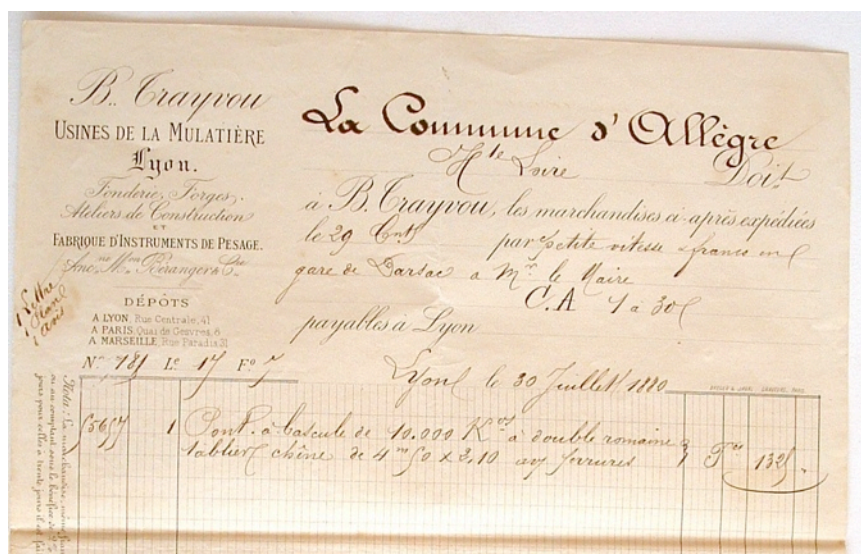 B. Trayvou
USINES DE LA MULATIÈRE
Lyon.
Fonderie, Forges,
Ateliers de Construction
ET
FABRIQUE D'INSTRUMENTS DE PESAGE.
Anc.ne M.on Béranger & Cie
DÉPÔTS
A LYON, Rue Centrale, 41
A PARIS, Quai de Gesvres, 6
A MARSEILLE, Rue Paradis 31
1 Lettre
1 Plan
1 avis
La Commune d'Allègre
Hte Loire Doit
à B. Trayvou, les marchandises ci-après expédiées
le 29 Ct par petite vitesse franco en
gare de Darsac a Mr le Maire
C.A 1 a 30
payables à Lyon
No 781 Lc 17 Fo 7
Lyon le 30 Juillet 1880
1 Pont à bascule de 10.000 Kos à double romaine
tablier chêne de 4m50 x 2.10 ferrures Fcs 1325
Nota: La marchandise
ou au comptant sous le bénéfice de
jours pour celles à trente jours il est